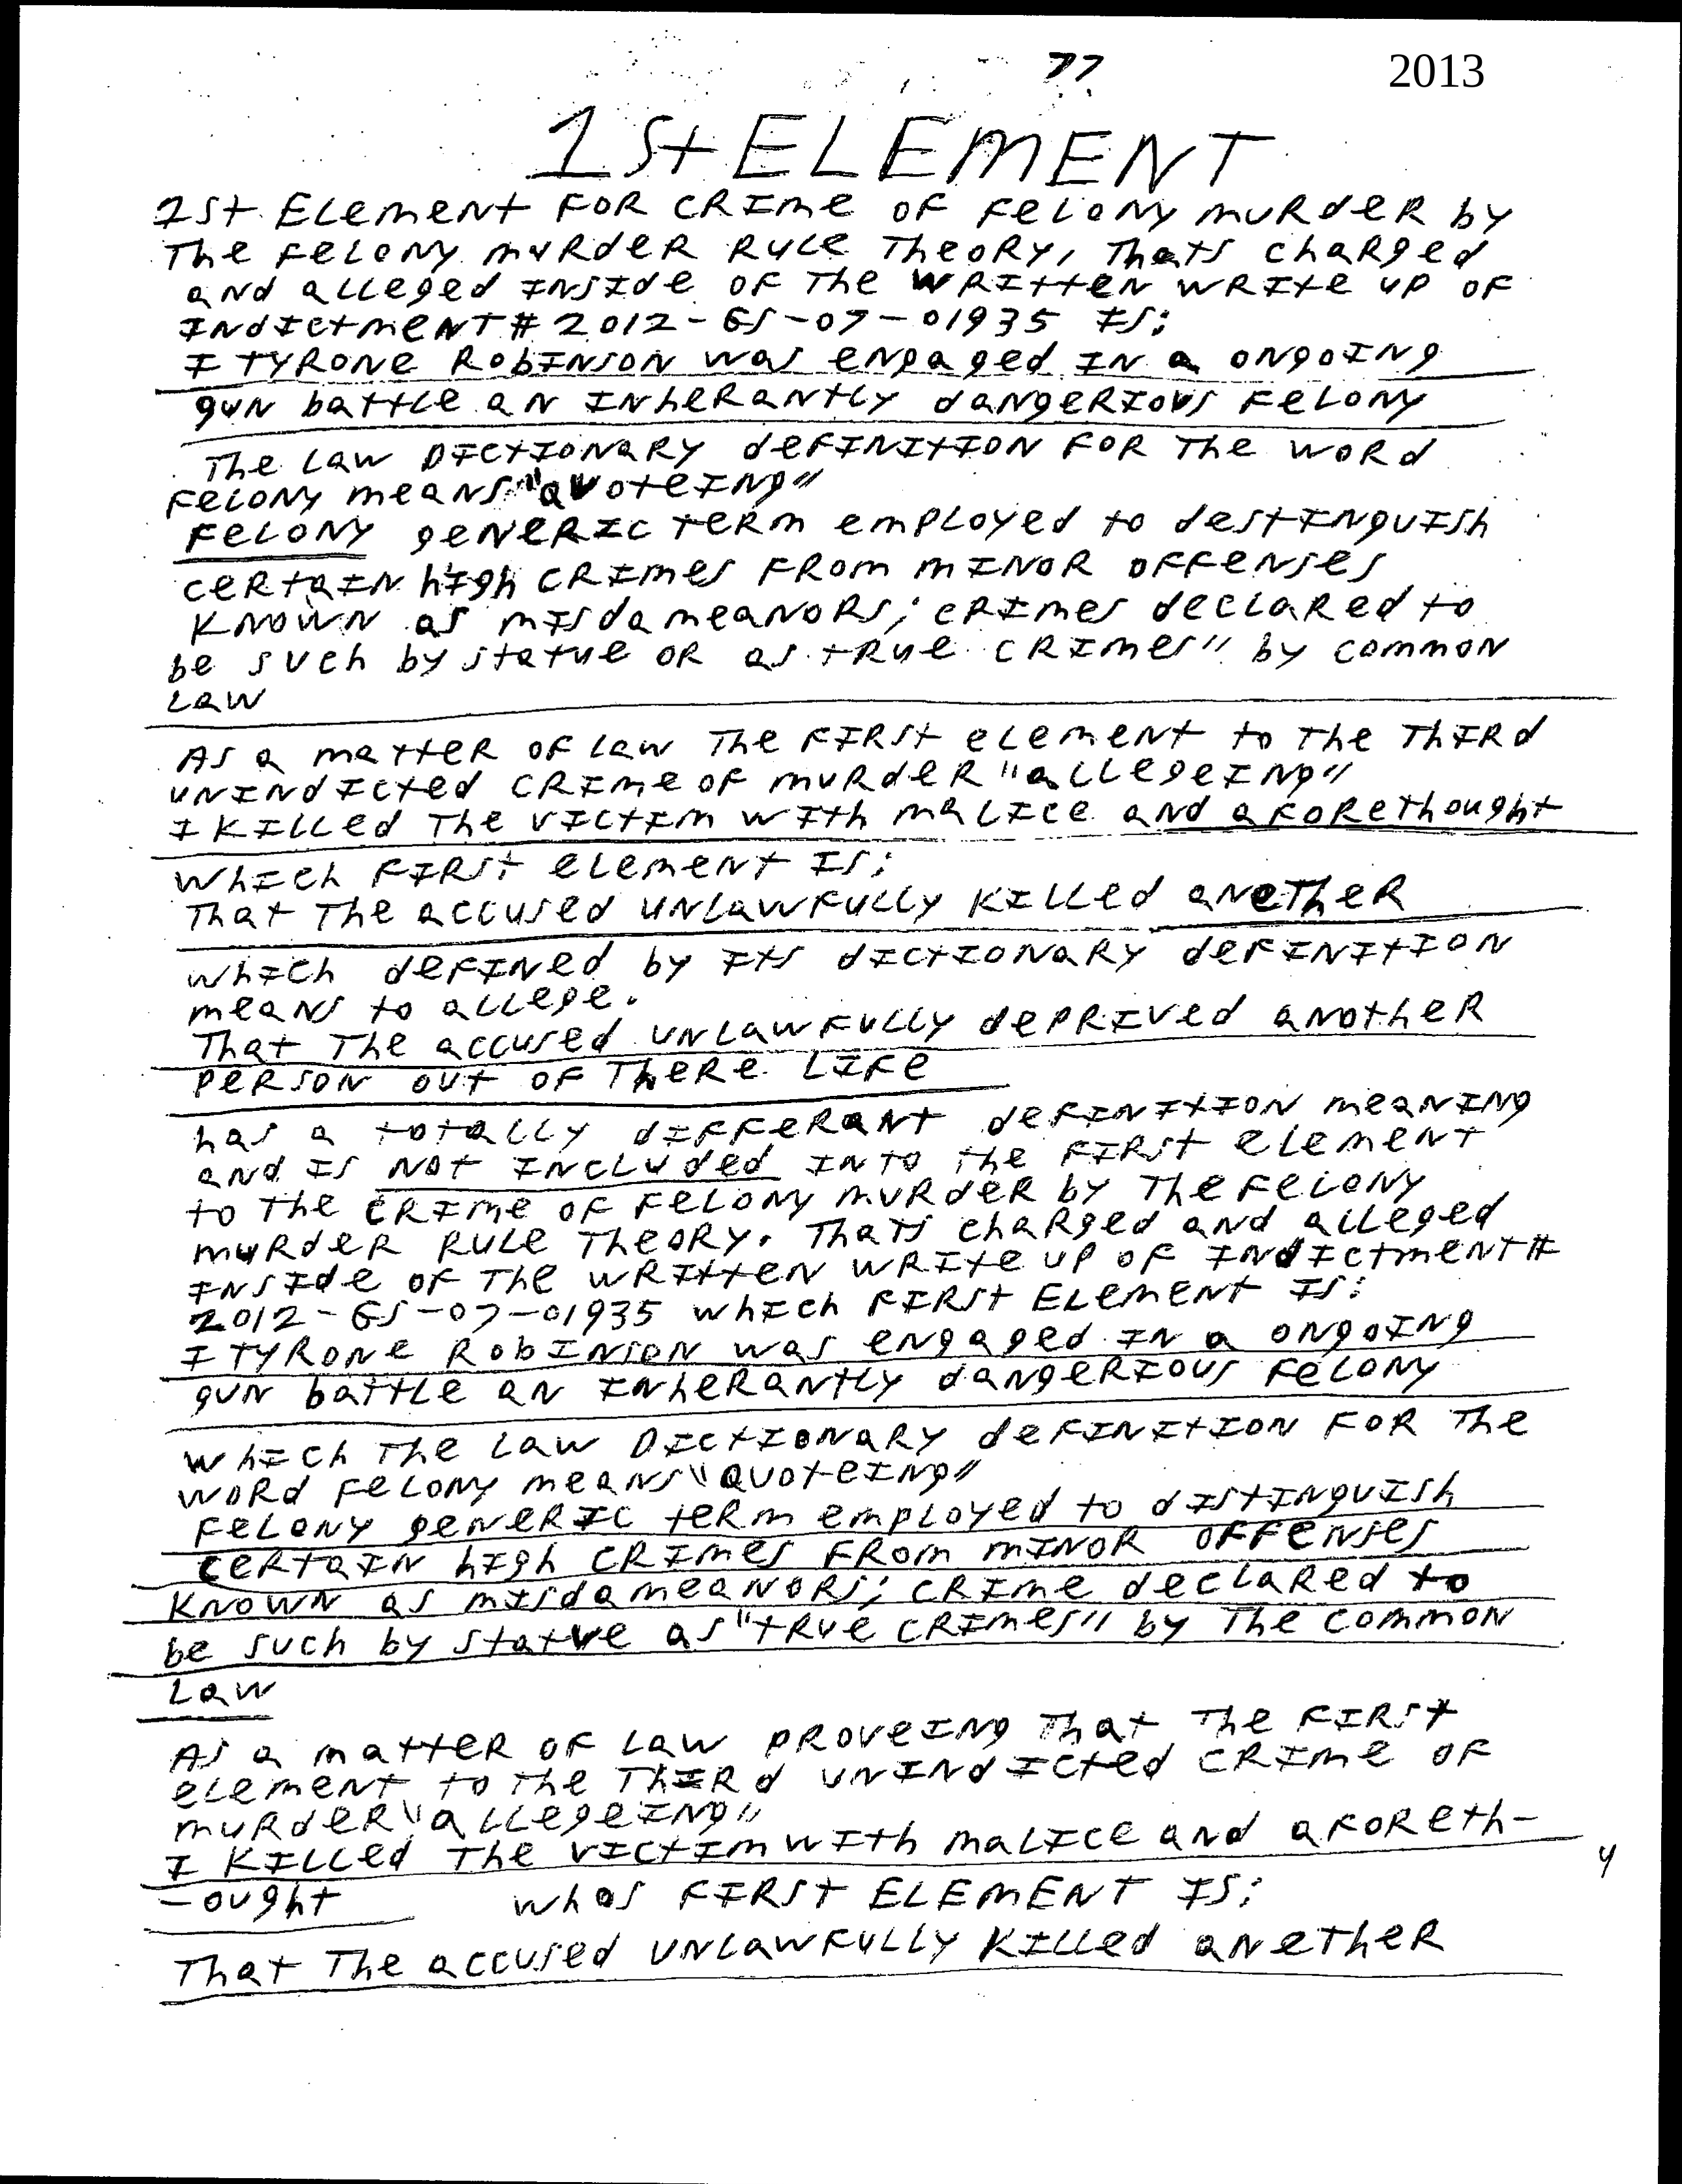 77.
2013
1St ELEMENT
1St ELEMENT FOR CRIME OF FELONY MURDER by
The FELONY MURDER RULE THEORY, Thats charged
and alleged INSIde OF The WRItten WRIte up OF
INdIctmeNT# 2012-GS-07-01935 IS:
I TYRONE RobINSON was engaged IN a ongoing
gun battle an INherantly dangerious Felony
The Law Dictionary definition FOR The word
Felony means "quoteing"
Felony generic term employed to destinguish
certain high crimes From minor offenses
known as misdameanors; crimes declared to
be such by statue or as true crimes" by common
Law
As a matter of law The First element to The Third
unindicted crime of murder "allegeing"
I Killed The victim with malice and aforethought
which First element Is:
That The accused unlawfully Killed anether
which defined by its dictionary definition
means to allege.
That The accused unlawfully deprived another
person out of There Life
has a totally differant definition meaning
and is not included into The First element
to The crime of Felony murder by The Felony
murder Rule Theory. Thats charged and alleged
inside of The written write up of Indictment#
2012-GS-07-01935 which First Element Is:
I Tyrone Robinson was engaged in a ongoing
gun battle an inherantly dangerious Felony
which The Law Dictionary definition for The
word Felony means "quoteing"
Felony generic term employed to distinguish
certain high crimes From minor offenses
known as misdameanors; crime declared to
be such by statue as "true crimes" by The common
Law
As a matter of law proveing That The First
element to The Third unindicted crime of
murder "allegeing"
I Killed The victim with malice and aforeth-
-ought whos FIRST ELEMENT IS:
That The accused unlawfully Killed anether
4